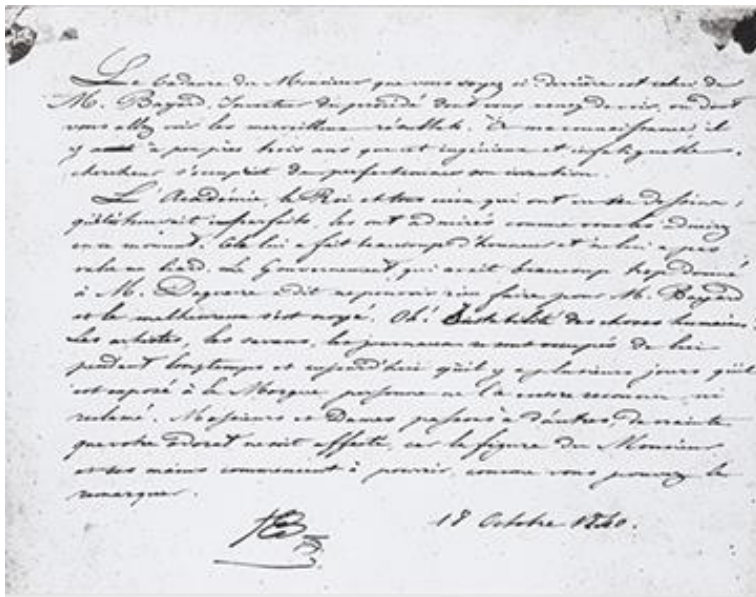 Le Cadavre du Monsieur que vous voyez ci-derrière est celui de
M. Bayard, Inventeur du procédé dont vous venez de voir, ou dont
vous allez voir les merveilleux résultats. À ma connaissance, il
y a à peu près trois ans que cet ingénieux et infatigable
chercheur s'occupait de perfectionner son invention.
L'Académie, le Roi et tous ceux qui ont vu ses dessins,
qu'il trouvait imparfaits, les ont admirés comme vous les admirez
en ce moment. Cela lui a fait beaucoup d'honneur et ne lui a pas
valu un liard. Le Gouvernement, qui avait beaucoup trop donné
à M. Daguerre a dit ne pouvoir rien faire pour M. Bayard
et le malheureux s'est noyé. Oh! Instabilité des choses humaines!
Les artistes, les savans, les journaux se sont occupés de lui
pendant longtemps et aujourd'hui qu'il y a plusieurs jours qu'il
est exposé à la Morgue, personne ne l'a encore reconnu, ni
réclamé. Messieurs et Dames, passons à d'autres, de crainte
que votre odorat ne soit affecté, car la figure du Monsieur
et ses mains commencent à pourrir, comme vous pouvez le
remarquer.
18 Octobre 1840.